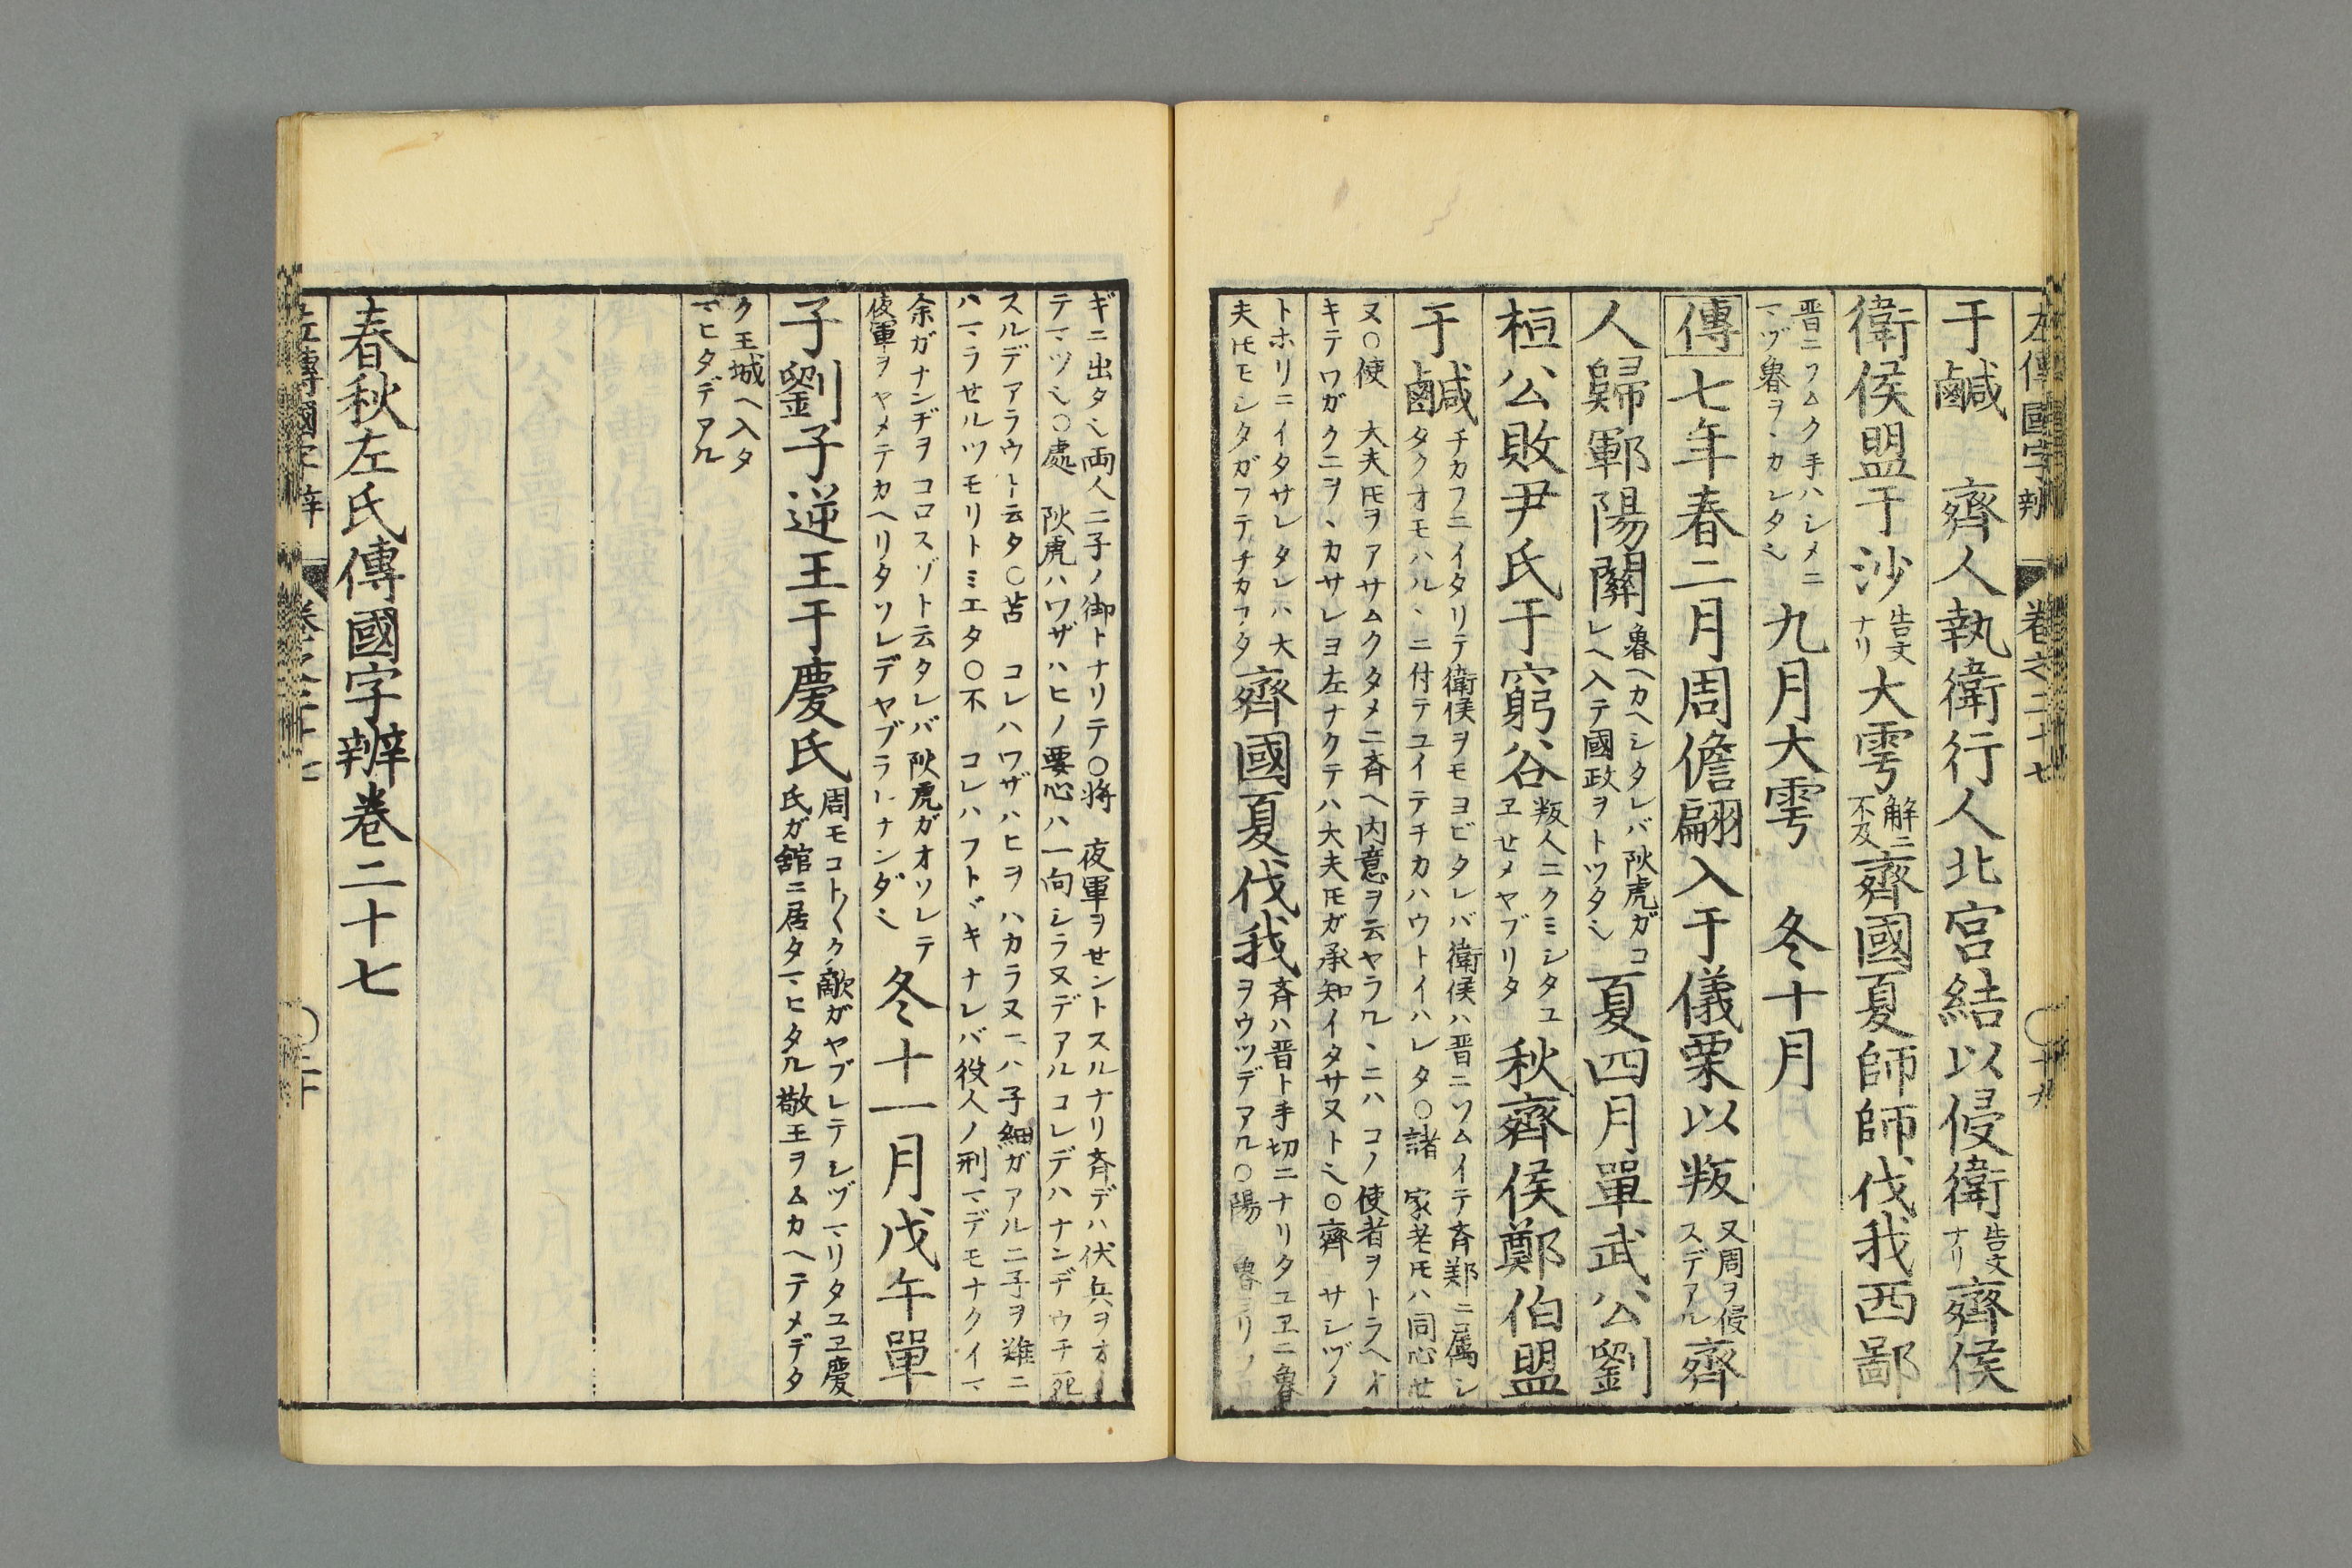 左傳國字辨 卷之二十七 十九
于鹹 齊人執衛行人北宮結以侵衛告文ナリ齊侯
衛侯盟于沙告文ナリ大雩解ニ不及齊國夏師師伐我西鄙
晋ニソムク手ハシメニマヅ魯ヲヽカレタ也 九月大雩 冬十月
傳七年春二月周儋翩入于儀栗以叛又周ヲ侵スデアル齊
人歸鄆陽關魯ヘカヘシタレバ阦虎ガコレヘ入テ國政ヲトツタ也夏四月單武公劉
桓公敗尹氏于窮谷叛人ニクミシタユヱせメヤブリタ秋齊侯鄭伯盟
于鹹チカフニイタリテ衛侯ヲモヨビタレバ衛侯ハ晋ニソムイテ斉鄭ニ属シタクオモハルヽニ付テユイテチカハウトイハレタ○諸 家老𪜈ハ同心せ
又○使 大夫𪜈ヲアサムクタメニ斉ヘ内意ヲ云ヤラルヽニハコノ使者ヲトラヘオキテワガクニヲヽカサレヨ左ナクテハ大夫𪜈ガ承知イタサヌト也○齊 サシヅノ
トホリニイタサレタレハ大夫𪜈モシタガフテチカフタ齊國夏伐我斉ハ晋ト手切ニナリタユヱニ魯ヲウツデアル○陽 魯ヨリノ
ギニ出タ也両人二子ノ御トナリテ○将 夜軍ヲせントスルナリ斉デハ伏兵ヲオイテマツ也○處 阦虎ハワザハヒノ要心ハ一向シラヌデアルコレデハナンデウチ死
スルデアラウト云タ○苫 コレハワザハヒヲハカラヌニハ子細ガアル二子ヲ難ニハマラせルツモリトミエタ○不 コレハフトヾキナレバ役人ノ刑マデモナクイマ
余ガナンヂヲコロスゾト云タレバ阦虎ガオソレテ夜軍ヲヤメテカヘリタソレデヤブラレナンダ也 冬十一月戊午單
子劉子逆王于慶氏周モコト〱ク敵ガヤブレテシヅマリタユヱ慶氏ガ舘ニ居タマヒタル敬王ヲムカヘテメデタ
ク王城ヘ入タマヒタデアル
春秋左氏傳國字辨卷二十七
左傳國字辨 卷之二十七 二十